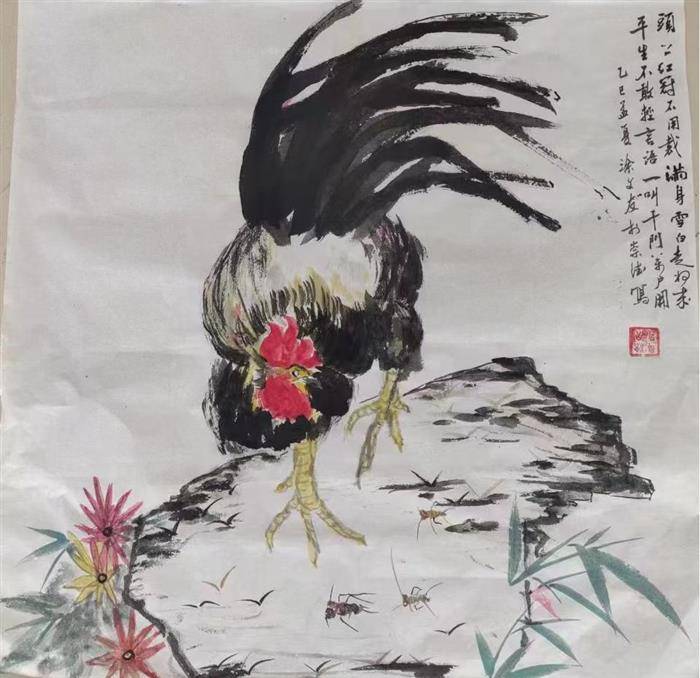 頭上紅冠不用裁 滿身雪白走將來
平生不敢輕言語 一叫千門萬户開
乙巳孟夏 涂文友於崇德